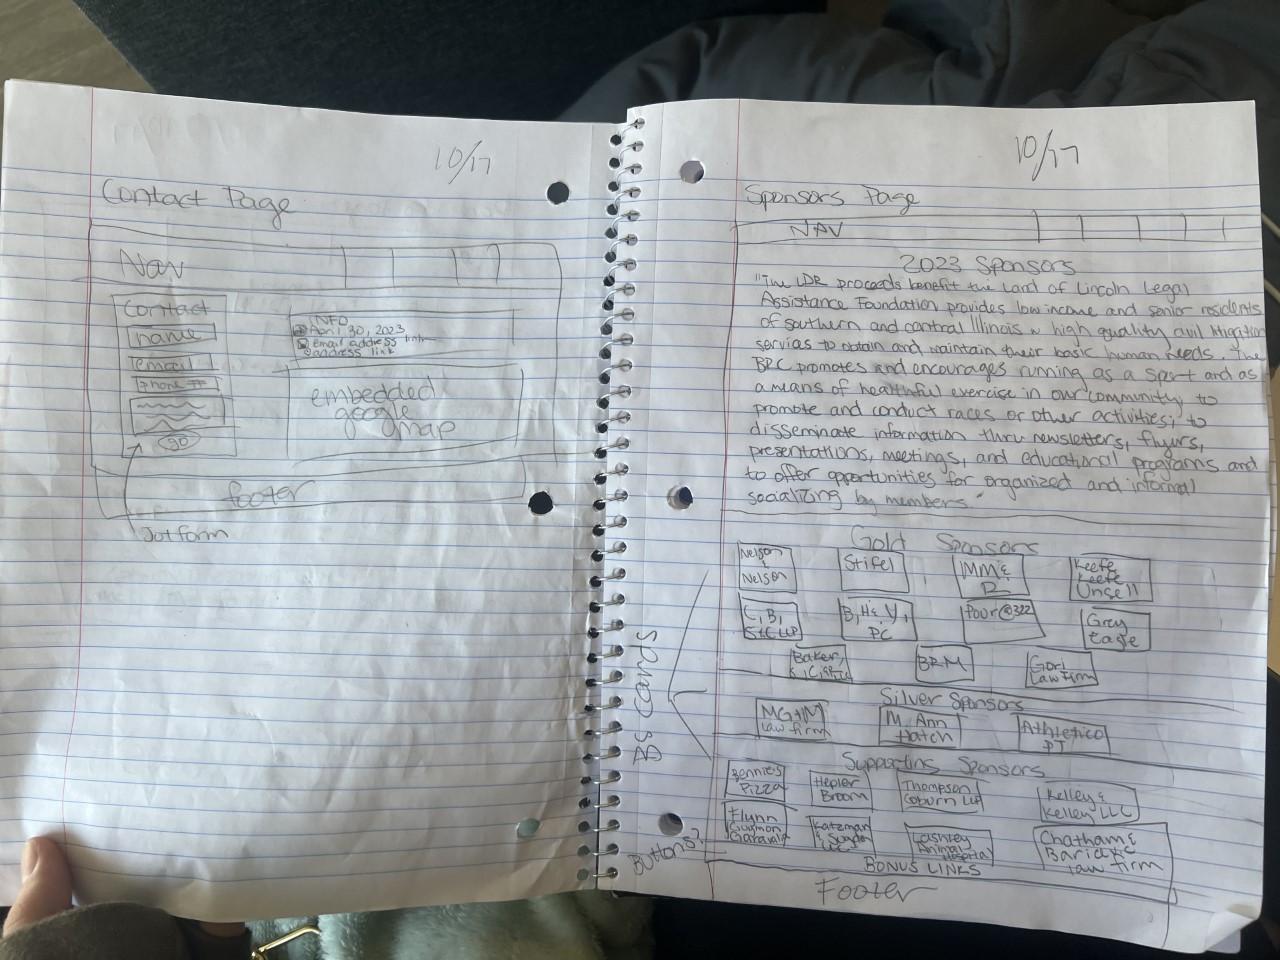 10/17
Contact Page
Nav
Contact
name
email
phone #
go
INFO
April 30, 2023
Email address link
address link
embedded
google
map
footer
Jotform
10/17
Sponsors Page
NAV
2023 Sponsors
"The LDR proceeds benefit the Land of Lincoln Legal
Assistance Foundation provides low income and senior residents
of southern and central Illinois w high quality civil litigation
services to obtain and maintain their basic human needs. The
BRC promotes and encourages running as a sport and as
a means of healthful exercise in our community; to
promote and conduct races or other activities; to
disseminate information thru newsletters, flyers,
presentations, meetings, and educational programs and
to offer opportunities for organized and informal
socializing by members."
Gold Sponsors
Nelson
&
Nelson
Stifel
MM &
R
Keefe
Keefe
Unsell
C, B,
S+C LLP
B, H & V,
PC
Pour@322
Grey
Eagle
Baker,
BRM
Gori
Law Firm
Silver Sponsors
MG+M
Law firm
M. Ann
Hatch
Athletico
PT
Supporting Sponsors
Bennies
Pizza
Hepler
Broom
Thompson
Coburn LLP
Kelley &
Kelley LLC
Flynn
Guymon
Garavalia
Katzman
& Sugden
LLC
Lashley
Animal
Hospital
Chatham &
Baricevic
law firm
BONUS LINKS
Footer
BS cards
Buttons?